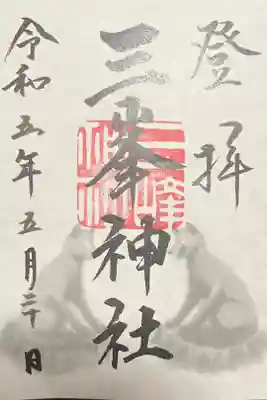 登拝
三峯神社
令和五年五月三十日